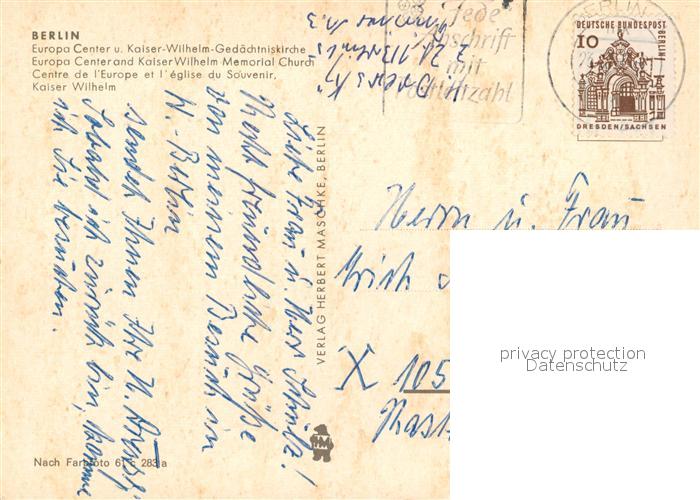 BERLIN
Europa Center u. Kaiser-Wilhelm-Gedächtniskirche
Europa Center and Kaiser Wilhelm Memorial Church
Centre de l'Europe et l'église du Souvenir,
Kaiser Wilhelm
Liebe Frau u. Herr
Recht freundliche Grüße
von meinem Besuch in
W.-Berlin
sendet Ihnen Ihr H.
Sobald ich zurück bin, komme
ich Sie besuchen.
Nach Farbfoto 61 c 283 a
VERLAG HERBERT MASCHKE, BERLIN
HM
jede
Anschrift
mit
Postleitzahl
BERLIN
DEUTSCHE BUNDESPOST
BERLIN
10
DRESDEN/SACHSEN
Herrn u. Frau
Erich
X 105
privacy protection
Datenschutz